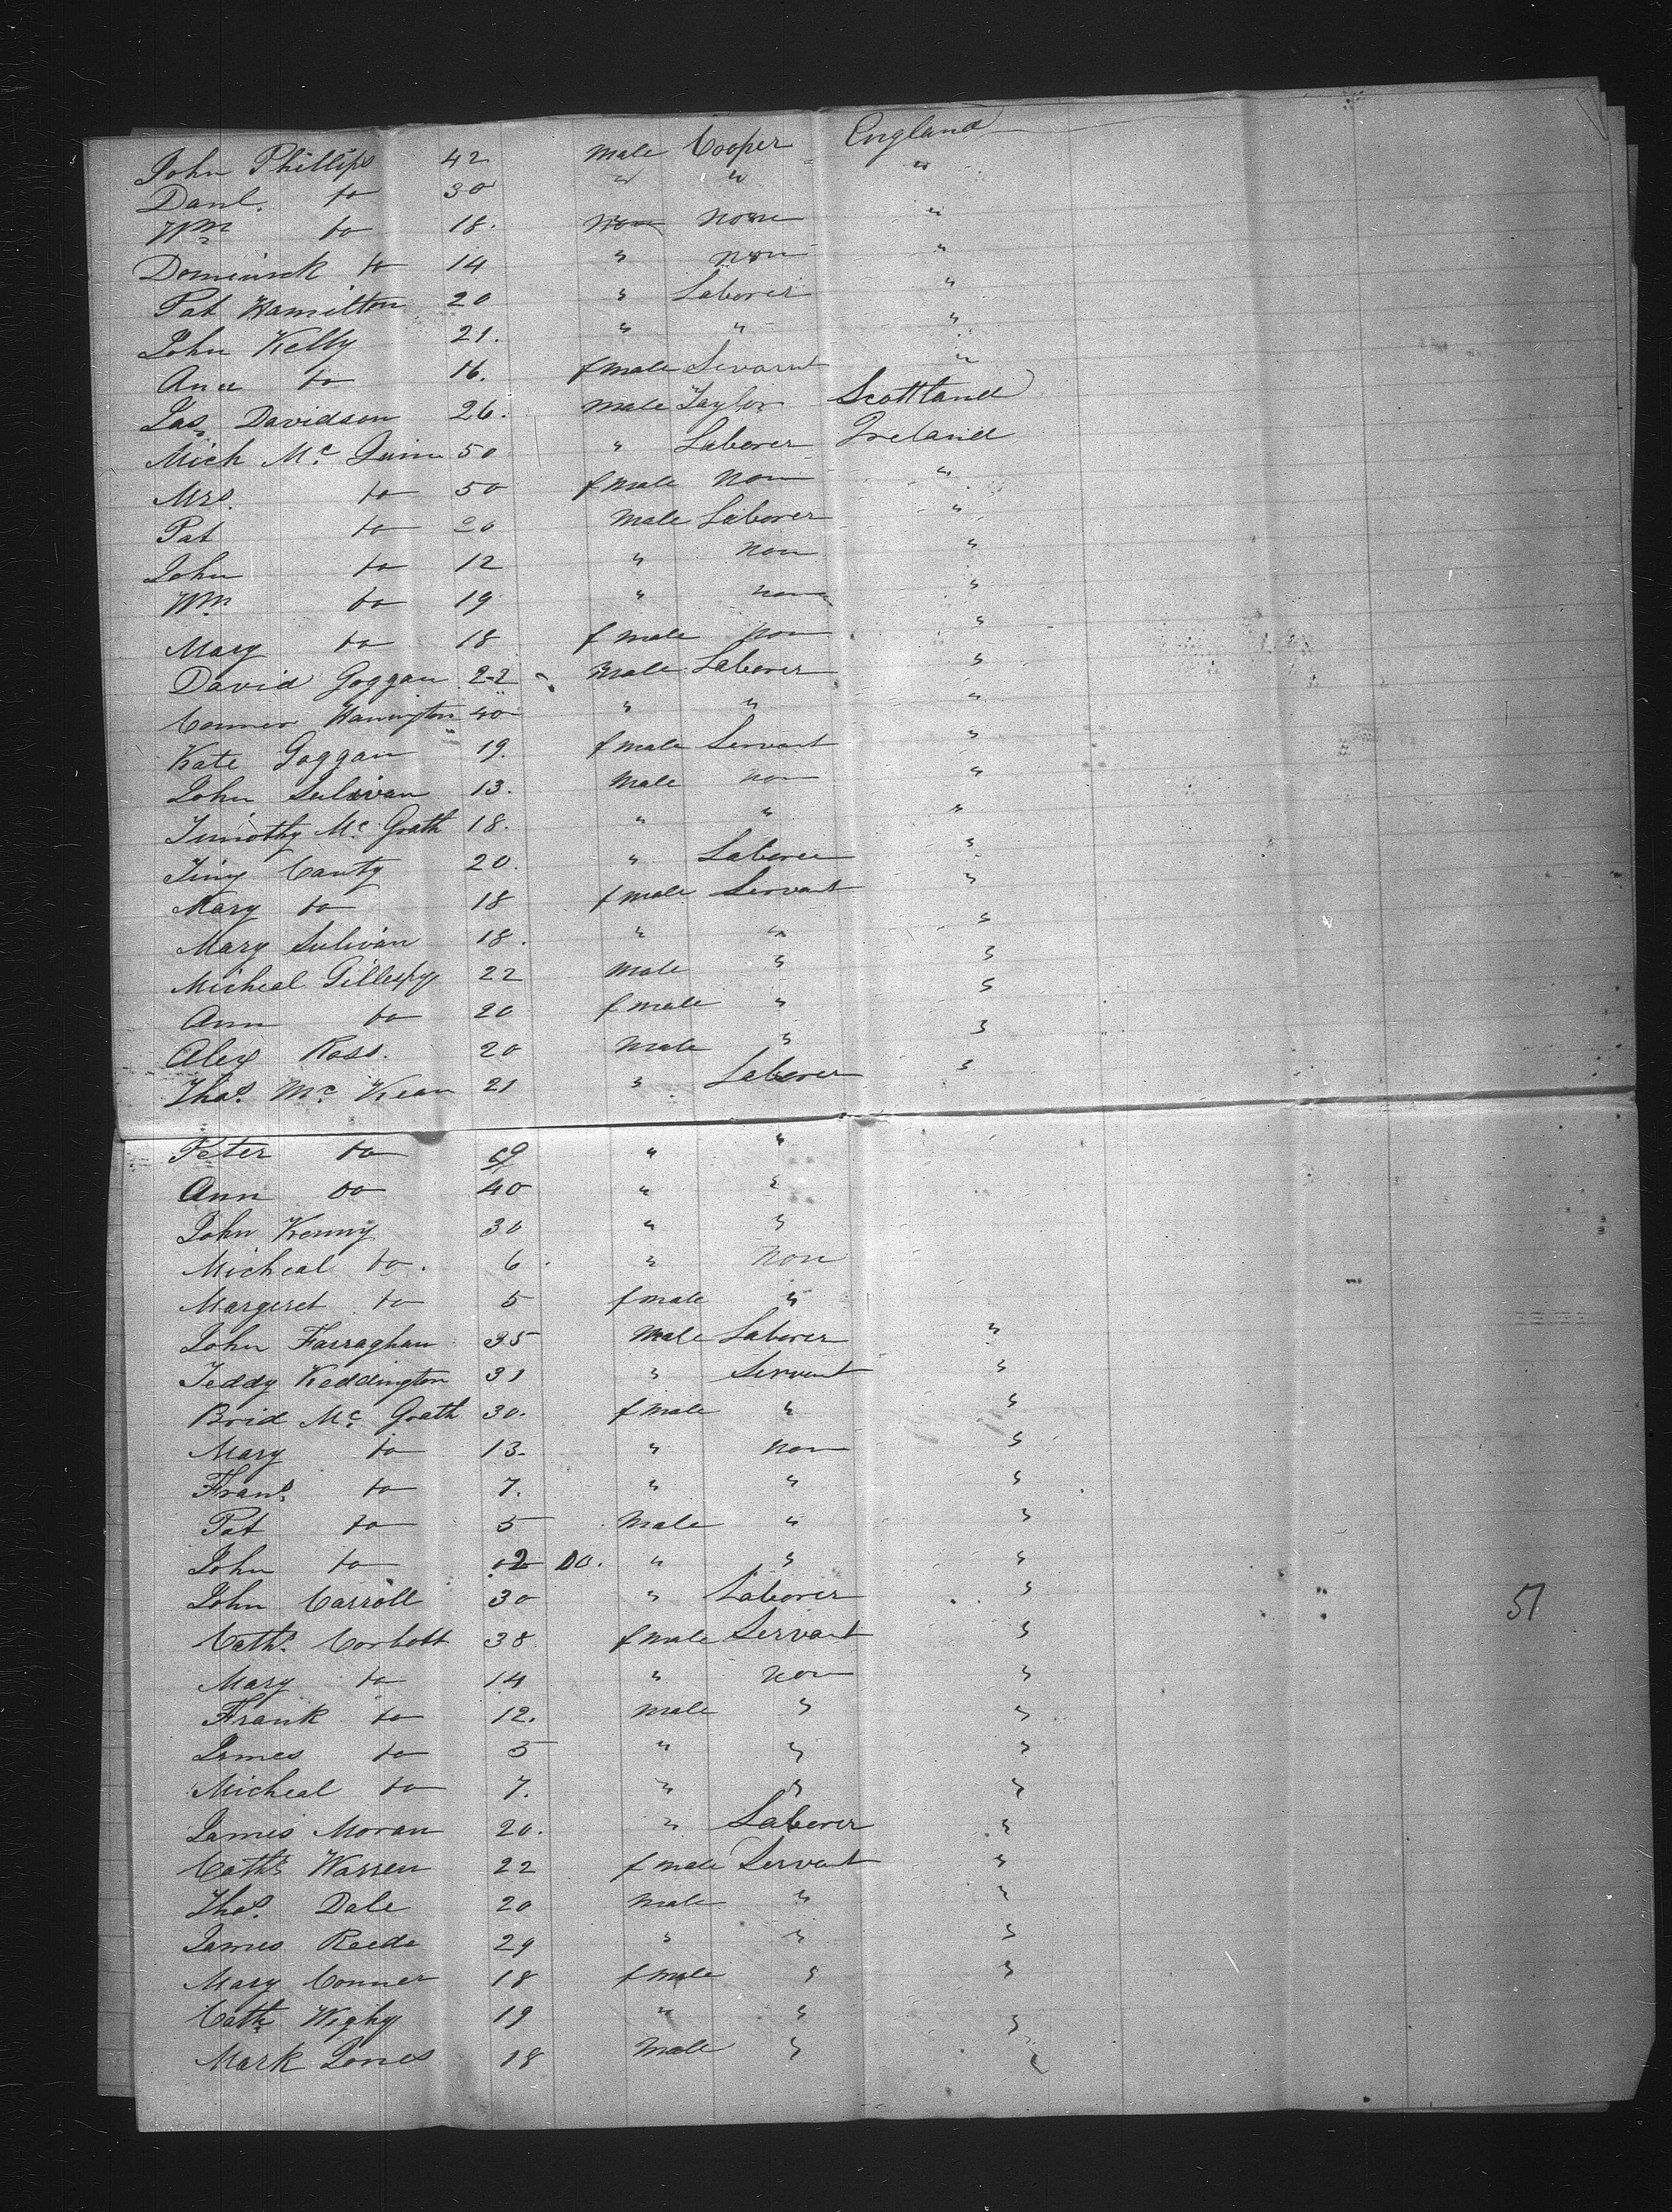 John Phillips 42 male Cooper England
Danl. do 30 " " "
Wm do 18. non none "
Dominick do 14 " non "
Pat Hamilton 20 " Laborer "
John Kelly 21. " " "
Ann do 16. f male Servant "
Jas. Davidson 26. male Taylor Scottland
Mich Mc. Quinn 50 " Laborer Ireland
Mrs. do 50 f male non "
Pat do 20 male Laborer "
John do 12 " non "
Wm do 19 " non "
Mary do 18 f male non "
David Goggan 22 male Laborer "
Conner Harrington 40 " " "
Kate Goggan 19. f male Servant "
John Sulivan 13. male non "
Timothy Mc. Grath 18. " " "
Canty 20. " Laborer "
Mary do 18 f male Servant "
Mary Sulivan 18. " " "
Micheal Gillespy 22 male " "
Ann do 20 f male " "
Alex Ross. 20 male " "
Thos. Mc. Kean 21 " Laborer "
Peter do " "
Ann do 40 " "
John Kenny 30 " "
Micheal do. 6. " non
Margeret do 5 f male "
John Farraghan 35 male Laborer "
Teddy Keddington 31 " Servant "
Brid Mc. Grath 30. f male " "
Mary do 13. " non "
Frans. do 7. " " "
Pat do 5 male " "
John do 2 DO. " " "
John Carroll 30 " Laborer "
Cath. Corbott 38 f male Servant "
Mary do 14 " non "
Frank do 12. male " "
James do 5 " " "
Micheal do 7. " " "
James Moran 20. " Laborer "
Cath Warren 22 f male Servant "
Thos. Dale 20 male " "
James Reede 29 " " "
Mary Conner 18 f male " "
Cath 19 " " "
Mark Jones 18 male " "
51